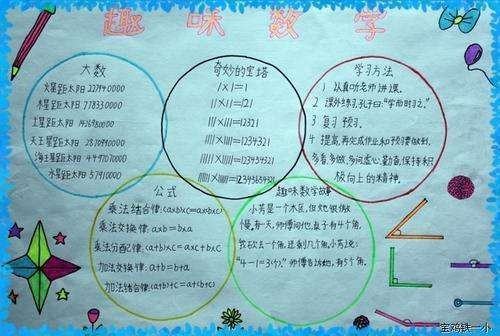 趣味数学
大数
火星距太阳 227940000
木星距太阳 778330000
土星距太阳 1429400000
天王星距太阳 2870990000
海王星距太阳 4497070000
水星距太阳 57910000
奇妙的宝塔
1×1=1
11×11=121
111×111=12321
1111×1111=1234321
11111×11111=123454321
111111×111111=12345654321
学习方法
1 认真听老师讲课。
2 课外练习,孔子曰:"学而时习之。"
3 复习 预习。
4 提高,再完成作业和预习
多看多做,多问虚心,勤奋,保持积
极向上的精神。
公式
乘法结合律:(a×b)×c=a×(b×c)
乘法交换律:a×b=b×a
乘法分配律:(a+b)×c=a×c+b×c
加法交换律:a+b=b+a
加法结合律:(a+b)+c=a+(b+c)
趣味数学故事
小芳是一个木匠,但她很
慢,有一天,师傅问他,桌子有4个角,
我砍去一个角,还剩几个角,小芳说:
"4-1=3(个)."师傅告诉他,有5个角。
宝鸡铁一小